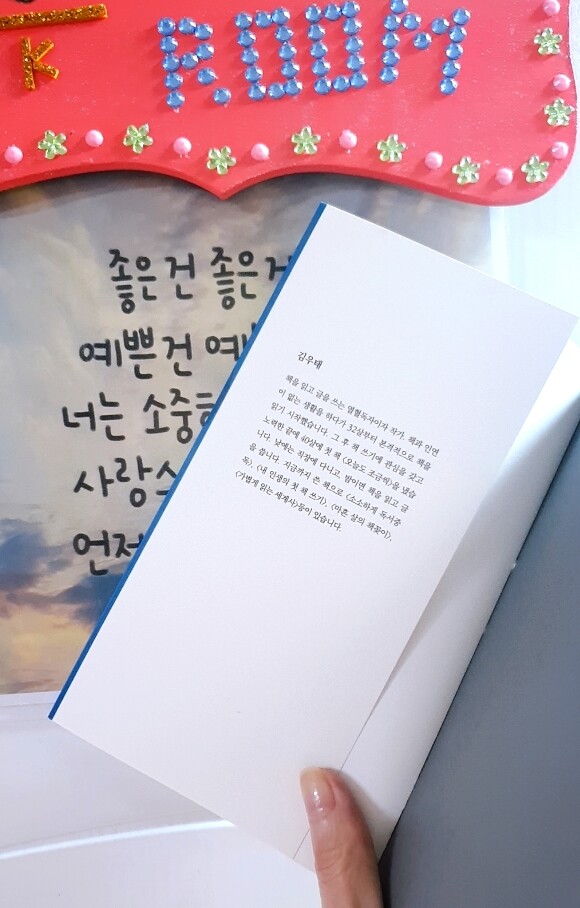 K
ROOM
좋은건 좋은
예쁜건
너는 소중
사랑
언제
김우태
책을 읽고 글을 쓰는 열혈독자이자 작가. 책과 인연
이 없는 생활을 하다가 32살부터 본격적으로 책을
읽기 시작했습니다. 그 후 책 쓰기에 관심을 갖고
노력한 끝에 40살에 첫 책 <오늘도 조금해>을 냈습
니다. 낮에는 직장에 다니고, 밤이면 책을 읽고 글
을 씁니다. 지금까지 쓴 책으로 <소소하게 독서중
독>, <내 인생의 첫 책 쓰기>, <마흔 살의 책꽂이>,
<가볍게 읽는 세계사>등이 있습니다.